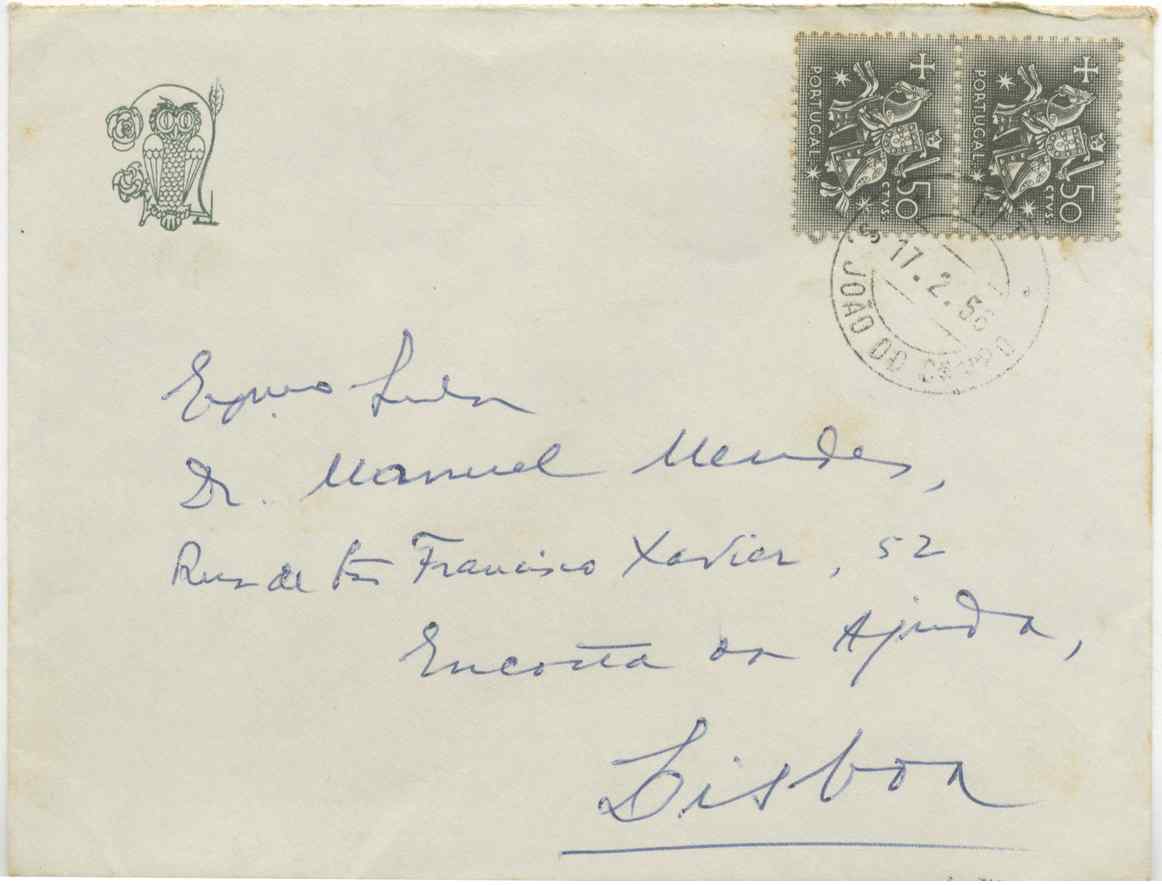 PORTUGAL
50
CTVS.
PORTUGAL
50
CTVS.
S. JOÃO DO CAMPO
17.2.56
Exmo Senhor
Dr. Manuel Mendes,
Rua de São Francisco Xavier, 52
Encosta da Ajuda,
Lisboa